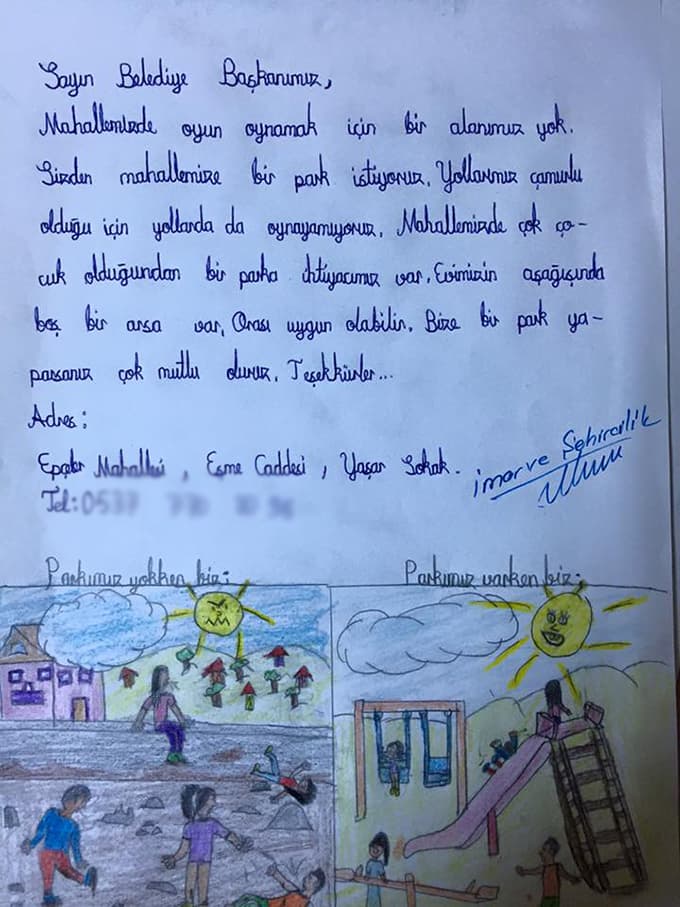 Sayın Belediye Başkanımız,
Mahallemizde oyun oynamak için bir alanımız yok.
Sizden mahallemize bir park istiyoruz. Yollarımız çamurlu
olduğu için yollarda da oynayamıyoruz. Mahallemizde çok ço-
cuk olduğundan bir parka ihtiyacımız var. Evimizin aşağışında
boş bir arsa var. Orası uygun olabilir. Bize bir park ya-
parsanız çok mutlu oluruz. Teşekkürler...
Adres:
Mahallesi, Esme Caddesi, Yaşar Sokak.
imar ve Şehircilik
Tel: 0537
Parkımız yokken biz:
Parkımız varken biz: